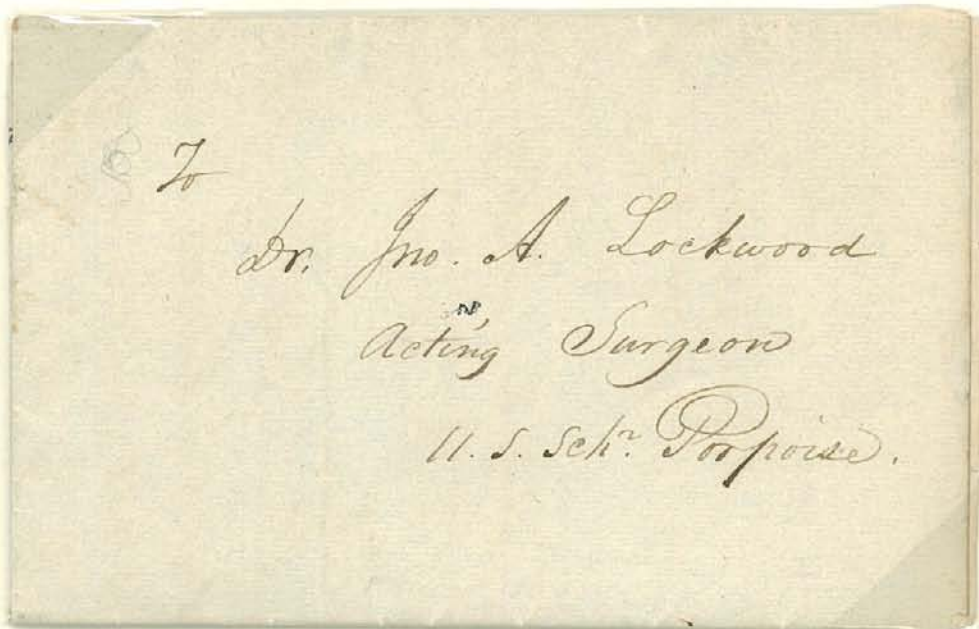 To
Dr. Jno. A. Lockwood
Acting Surgeon
U. S. Schr. Porpoise.